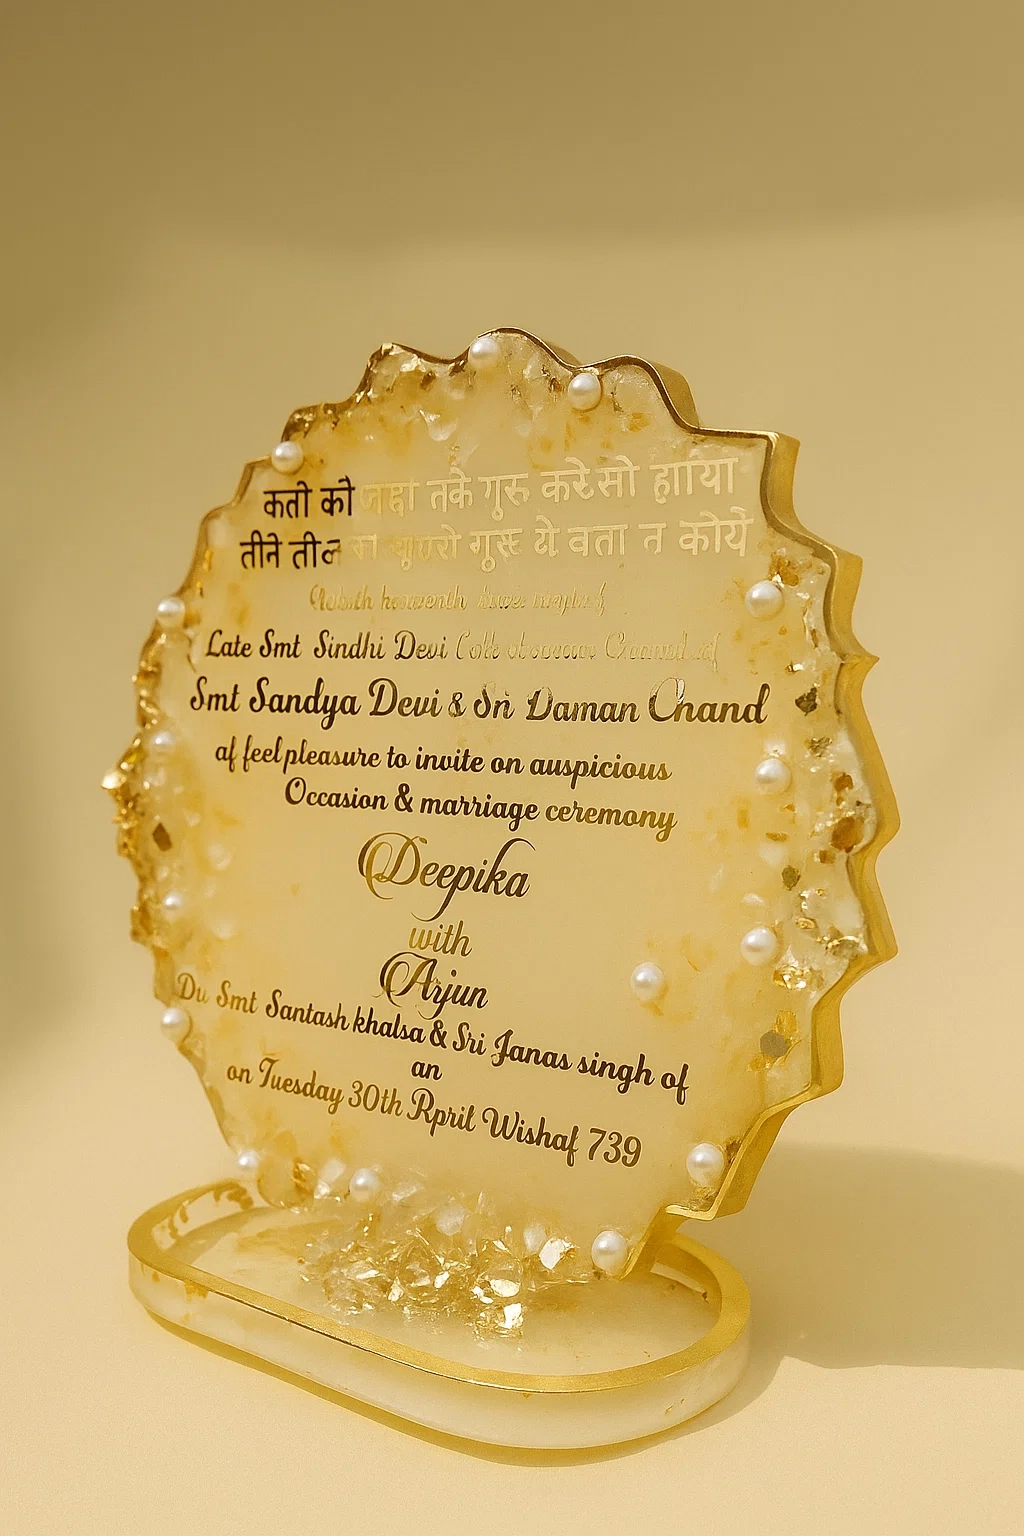 कती को तके गुरु करेसो हााया
तीने गुरु ये वता न कोये
Late Smt Sindhi Devi
Smt Sandya Devi & Sri Daman Chand
af feel pleasure to invite on auspicious
Occasion & marriage ceremony
Deepika
with
Arjun
Du Smt Santash khalsa & Sri Janas singh of
an
on Tuesday 30th Rprit Wishaf 739